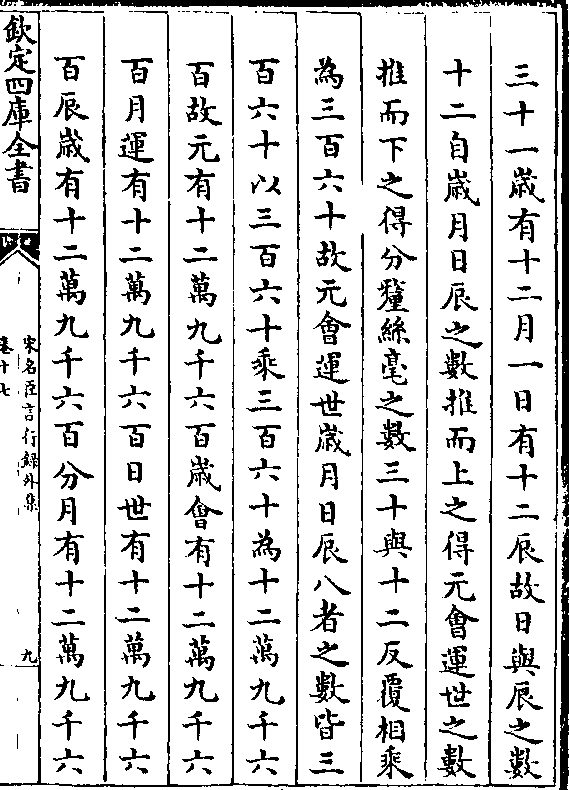 三十一歳有十二月一日有十二辰故日與辰之數
十二自歳月日辰之數推而上之得元會運世之數
推而下之得分釐絲毫之數三十與十二反覆相乘
為三百六十故元會運世歳月日辰八者之數皆三
百六十以三百六十乘三百六十為十二萬九千六
百故元有十二萬九千六百歳會有十二萬九千六
百月運有十二萬九千六百日世有十二萬九千六
百辰歳有十二萬九千六百分月有十二萬九千六
欽定四庫全書
宋名臣言行録外集
卷十七
九